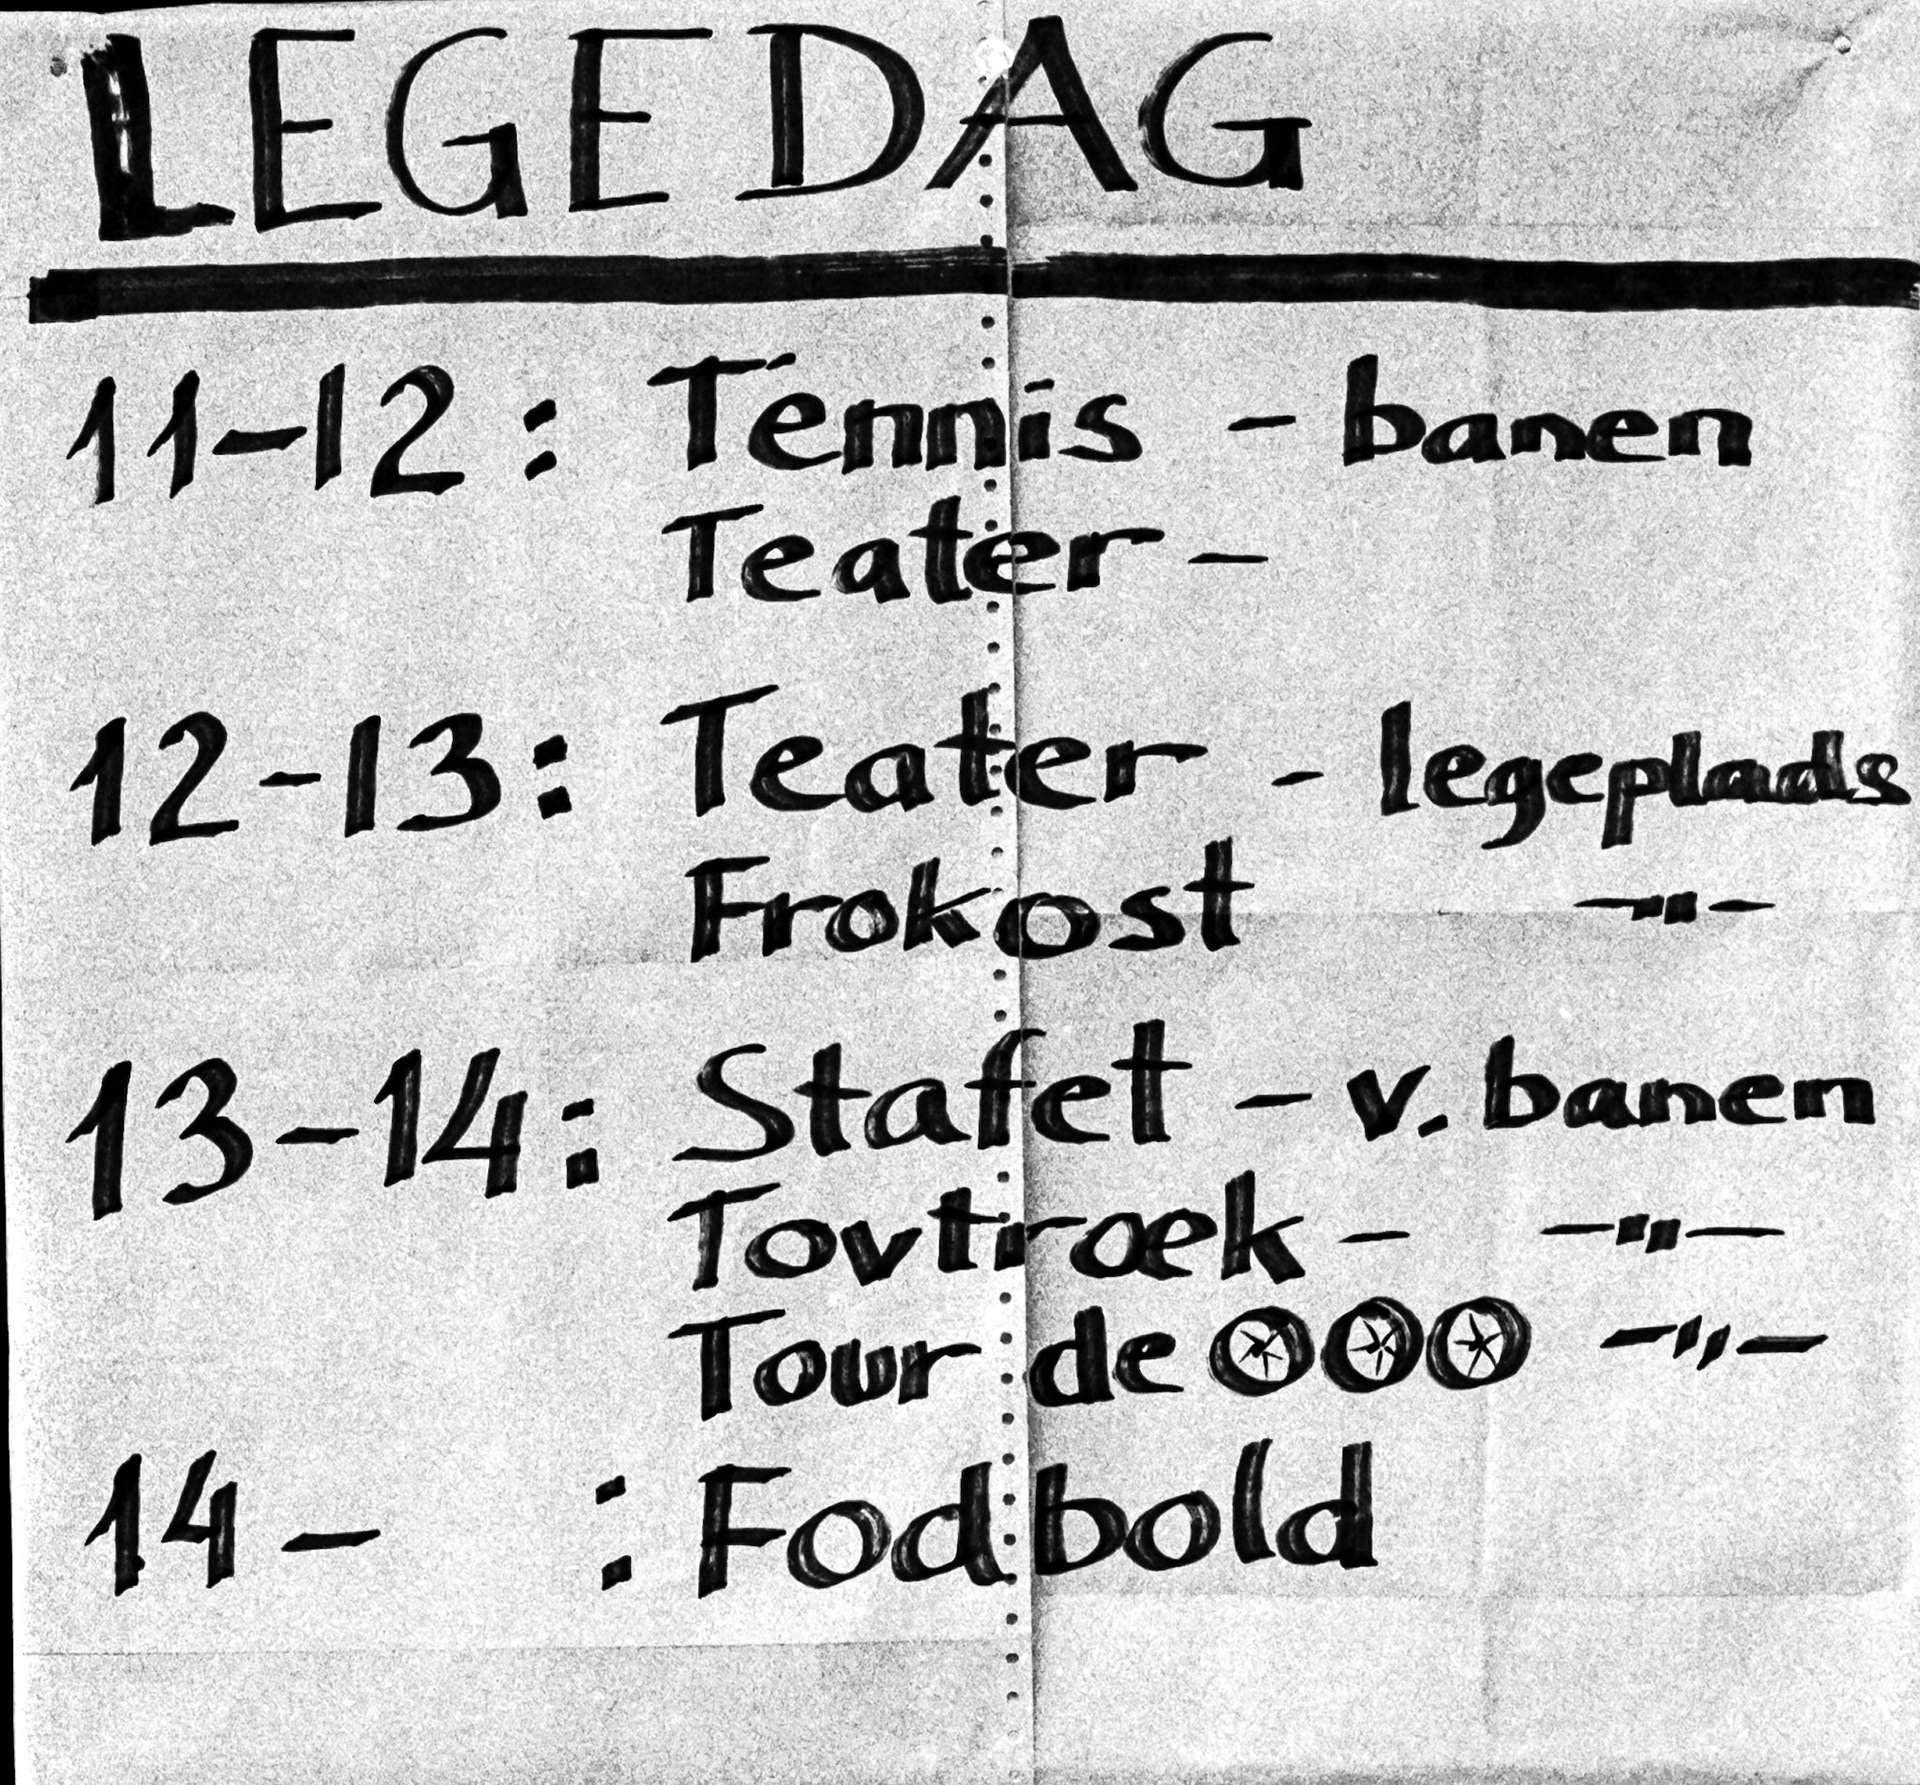 LEGEDAG
11-12: Tennis - banen
Teater -
12-13: Teater - legeplads
Frokost -"-
13-14: Stafet - v. banen
Tovtræk - -"-
Tour de OOO -"-
14- : Fodbold